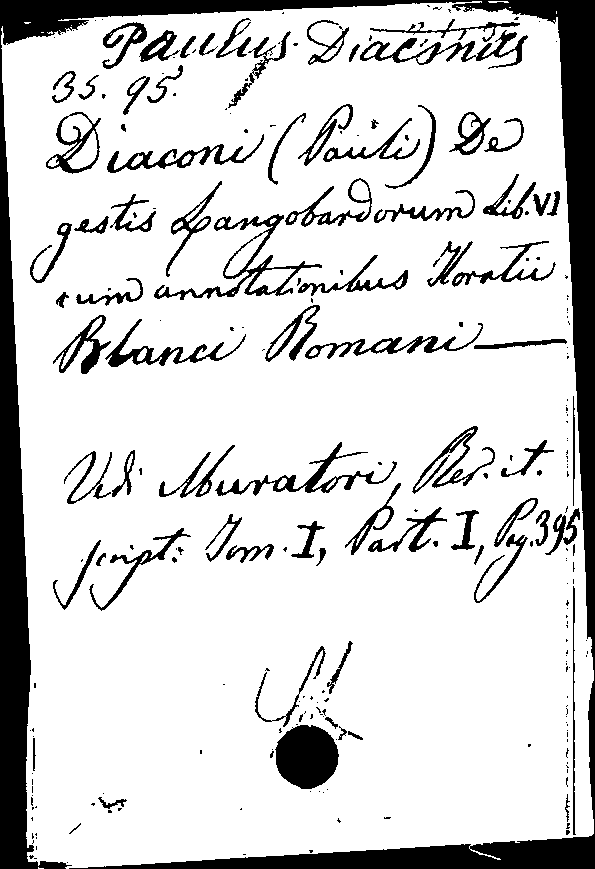 Paulus Diaconus
35. 95.
Diaconi (Pauli) De
gestis Langobardorum Lib. VI
cum annotationibus Horatii
Blanci Romani —
Vidi Muratori, Rer. it.
script: Tom. I, Part. I, Pag. 395